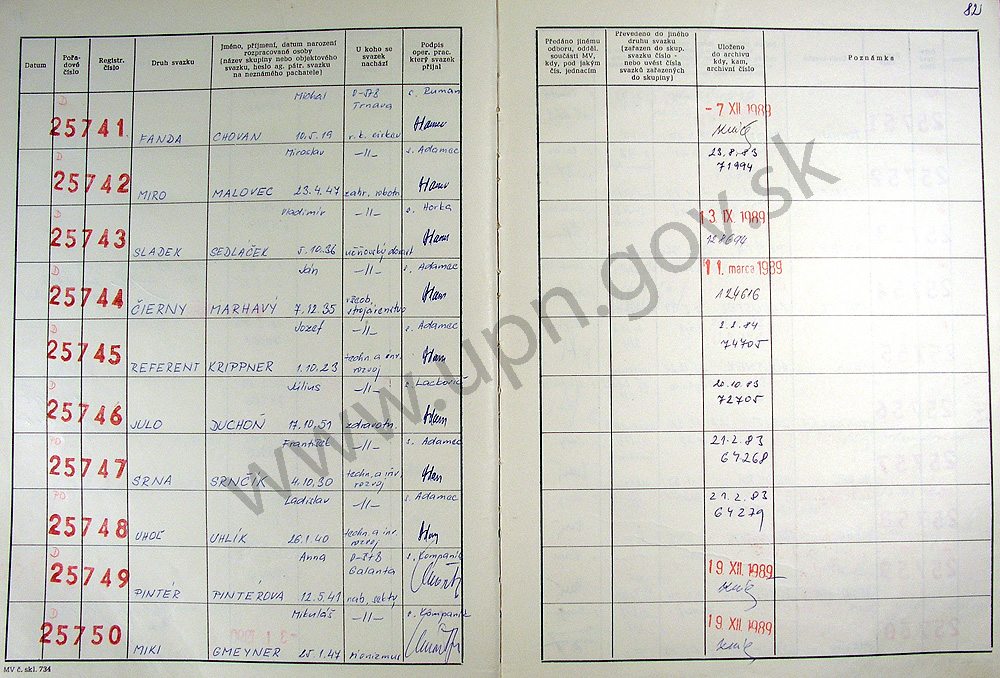 82
Datum
Pořadové číslo
Registr. číslo
Druh svazku
Jméno, příjmení, datum narození rozpracované osoby (název skupiny nebo objektového svazku, heslo ag. pátr. svazku na neznámého pachatele)
U koho se svazek nachází
Podpis oper. prac. který svazek přijal
Předáno jinému odboru, odděl. součásti MV, kdy, pod jakým čís. jednacím
Převedeno do jiného druhu svazku (zařazen do skup. svazku číslo - nebo uvést čísla svazků zařazených do skupiny)
Uloženo do archivu kdy, kam, archivní číslo
Poznámka
D Michal O-ŠtB s. Ruman
Trnava
25741 FANDA CHOVAN 10.5.19 r.k. cirkev - 7 XII 1989
D Miroslav -||- s. Adamec 23.8.83
25742 MIRO MALOVEC 23.4.47 zahr. robota 71994
D Vladimír -||- s. Horka
25743 SLADEK SEDLAČEK 5.10.36 učňovský dorast 13 IX. 1989
128694
D Ján -||- s. Adamec 11. marca 1989
25744 ČIERNY MARHAVÝ 7.12.35 všeob. strojárenstvo 124616
D Jozef -||- s. Adamec 2.2.84
25745 REFERENT KRIPPNER 1.10.23 techn. a inv. rozvoj 74705
D Július -||- s. Lackovič 20.10.83
25746 JULO DUCHOŇ 17.10.51 zdravotn. 72705
PO František -||- s. Adamec 21.2.83
25747 SRNA SRNČÍK 4.10.30 techn. a inv. rozvoj 64268
PO Ladislav -||- s. Adamec 21.2.83
25748 UHOĽ UHLÍK 26.1.40 techn. a inv. rozvoj 64279
D Anna O-ŠtB s. Kompaník
Galanta
25749 PINTÉR PINTEROVA 12.5.41 nab. sekty 19 XII. 1989
D Mikuláš -||- s. Kompaník
25750 MIKI GMEYNER 25.1.47 sionizmus 19 XII. 1989
MV č. skl. 734
www.upn.gov.sk